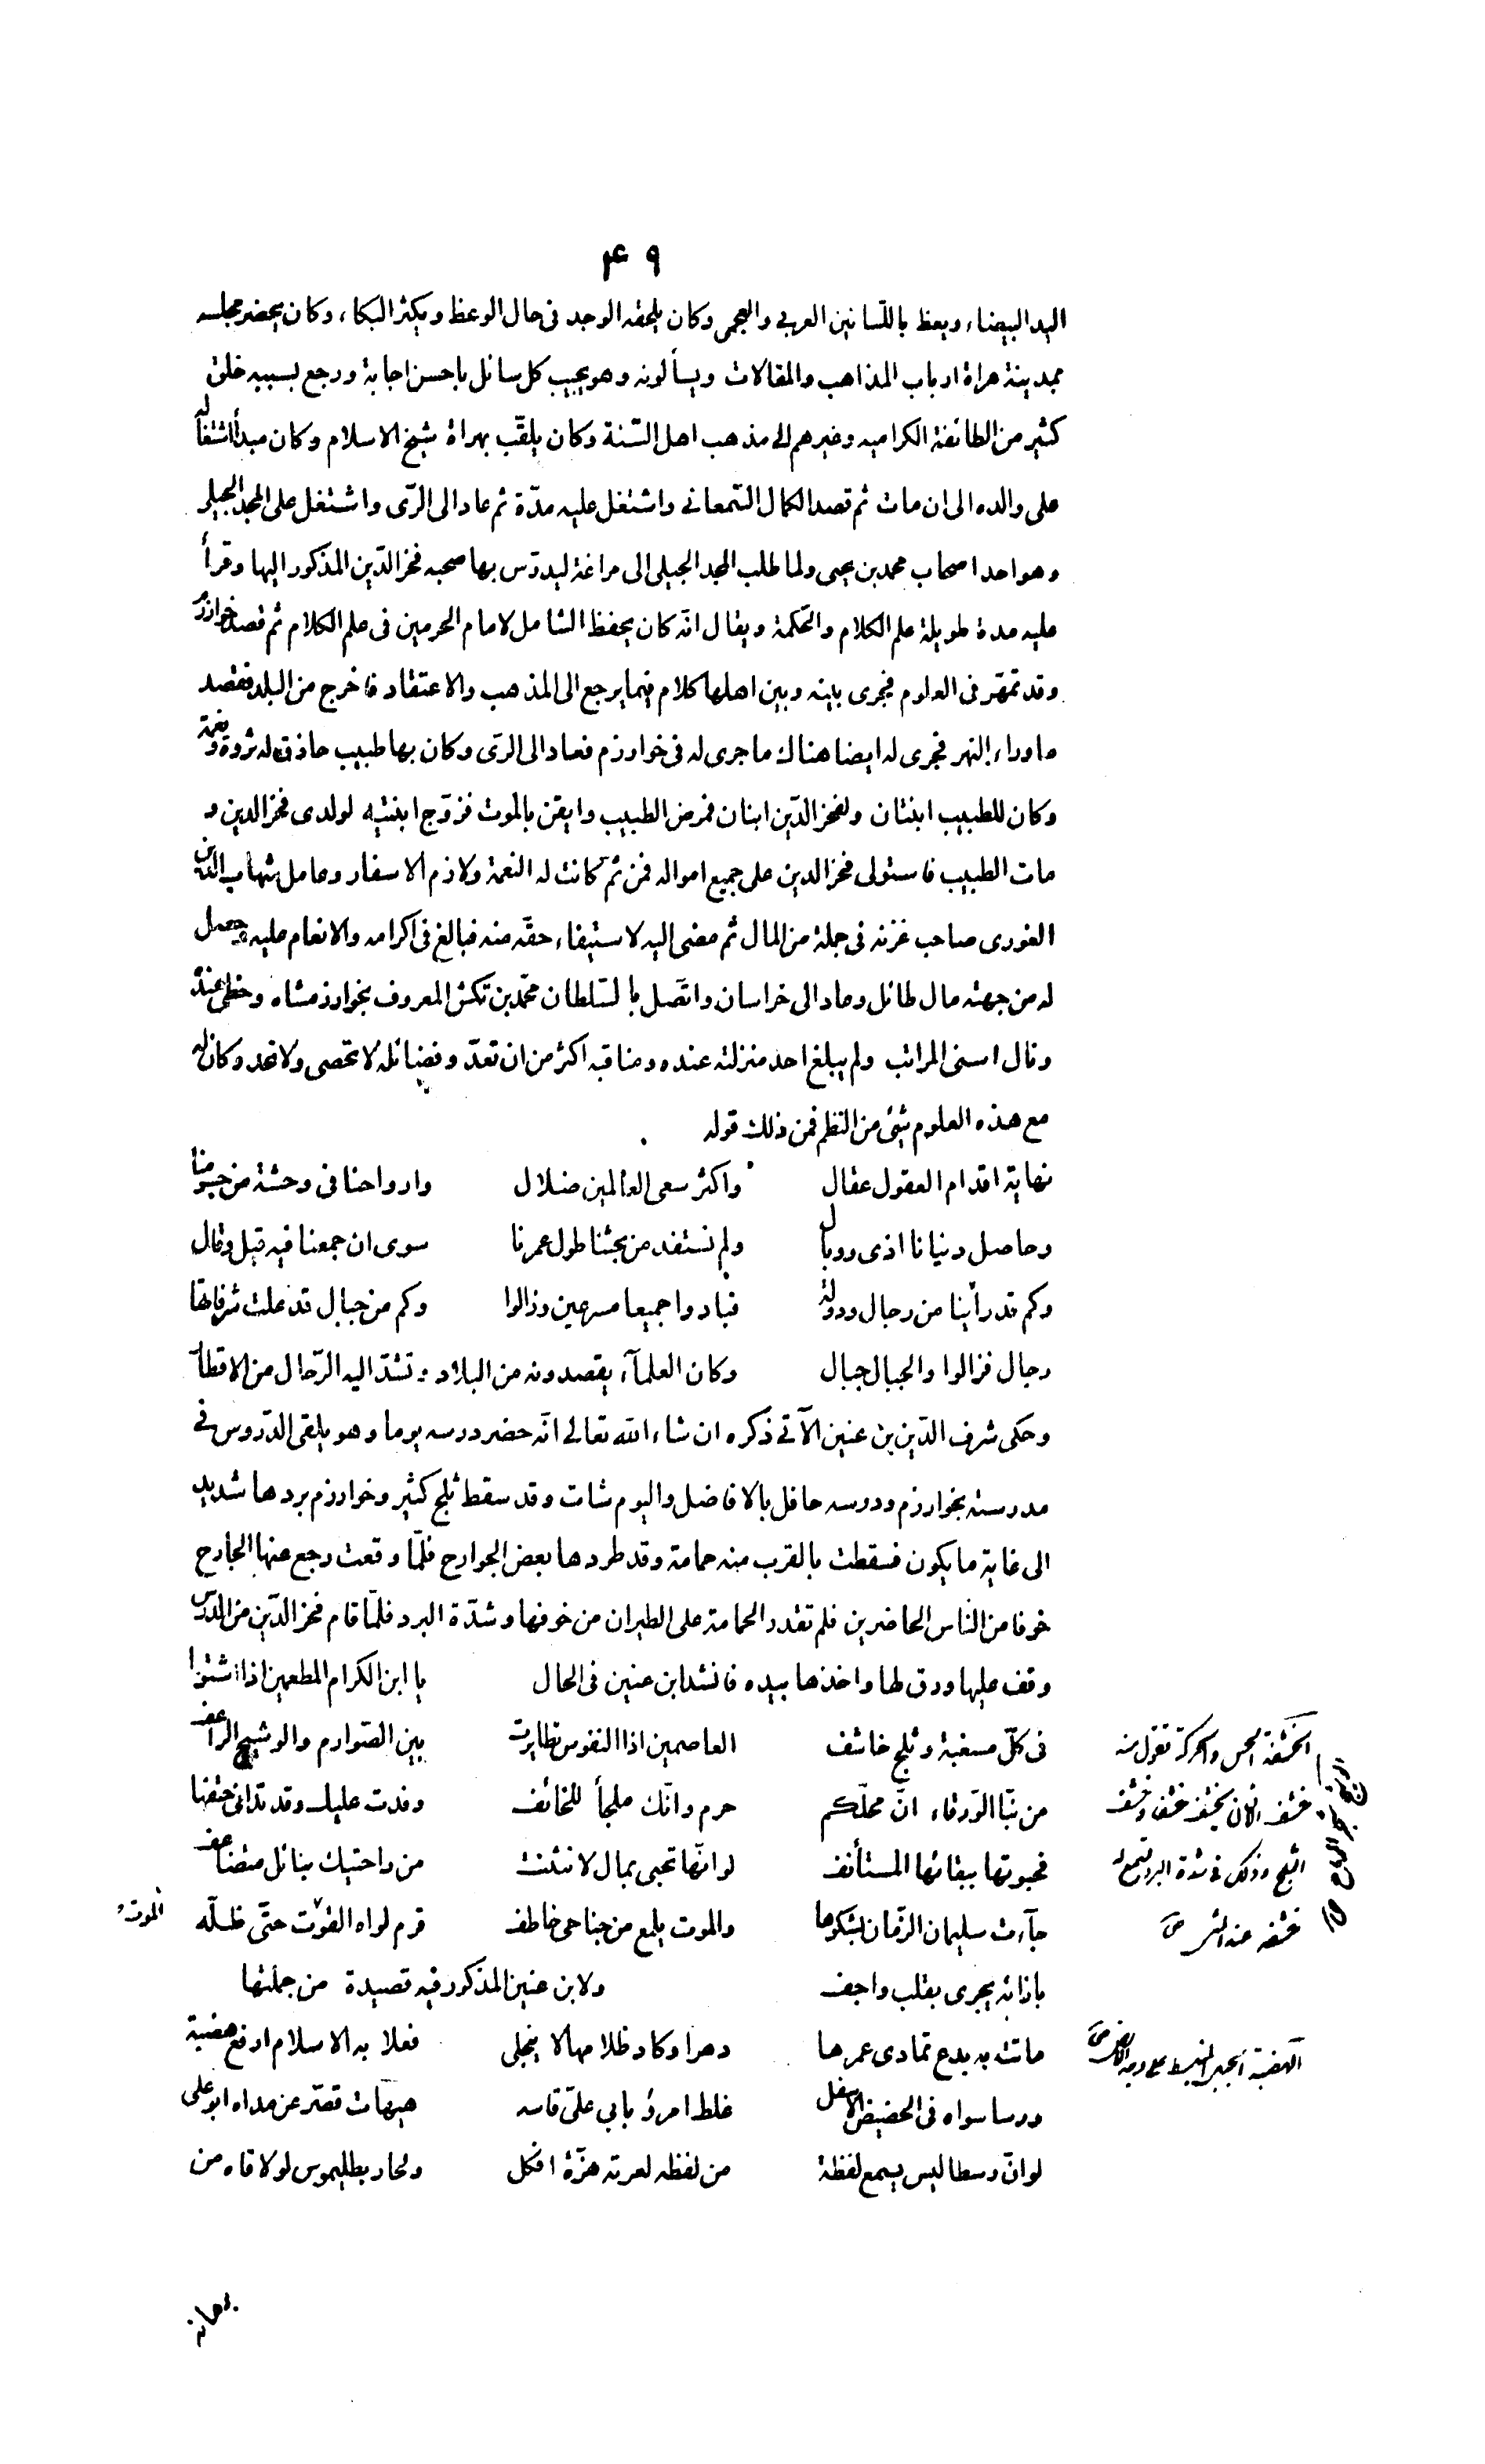 ٤٩
اليد البيضاء ويعظ باللّسانين العربي والعجمى وكان يلحقه الوجد فى حال الوعظ ويكثر البكاء وكان يحضر مجلسه
بمدينة هراة ارباب المذاهب والمقالات ويسألونه وهو يجيب كل سائل باحسن اجابة ورجع بسببه خلق
كثير من الطائفة الكراميه وغيرهم الى مذهب اهل السّنة وكان يلقّب بهراة شيخ الاسلام وكان مبدأ اشتغاله
على والده الى ان مات ثم قصد الكمال السّمعانى واشتغل عليه مدّة ثم عاد الى الرّى واشتغل على المجد الجيلى
وهو احد اصحاب محمد بن يحيى ولما طلب المجد الجيلى الى مراغة ليدرّس بها صحبه فخر الدّين المذكور اليها وقرأ
عليه مدة طويلة علم الكلام والحكمة ويقال انّه كان يحفظ الشامل لامام الحرمين فى علم الكلام ثم قصد خوارزم
وقد تمهّر فى العلوم فجرى بينه وبين اهلها كلام فيما يرجع الى المذهب والاعتقاد فاخرج من البلد فقصد
ماوراء النهر فجرى له ايضا هناك ما جرى له فى خوارزم فعاد الى الرّى وكان بها طبيب حاذق له ثروة ونعمة
وكان للطبيب ابنتان ولفخر الدّين ابنان فمرض الطبيب وايقن بالموت فزوّج ابنتيه لولدى فخر الدين و
مات الطبيب فاستولى فخر الدين على جميع امواله فمن ثمّ كانت له النعمة ولازم الاسفار وعامل شهاب الدّين
الغورى صاحب غزنه فى جملة من المال ثم مضى اليه لاستيفاء حقّه منه فبالغ فى اكرامه والانعام عليه وحصل
له من جهته مال طائل وعاد الى خراسان واتّصل بالسّلطان محمّد بن تكش المعروف بخوارزمشاه وحظى عنده
ونال اسنى المراتب ولم يبلغ احد منزلته عنده ومناقبه اكثر من ان تعدّ وفضائله لا تحصى ولا تحد وكان له
مع هذه العلوم شئ من النظم فمن ذلك قوله
نهاية اقدام العقول عقال واكثر سعى العالمين ضلال وارواحنا فى وحشة من جسومنا
وحاصل دنيانا اذى ووبال ولم نستفد من بحثنا طول عمرنا سوى ان جمعنا فيه قيل وقال
وكم قد رأينا من رجال ودولة فبادوا جميعا مسرعين وزالوا وكم من جبال قد علت شرفاتها
رجال فزالوا والجبال جبال وكان العلمآء يقصدونه من البلاد وتشدّ اليه الرّحال من الاقطار
وحكى شرف الدّين بن عنين الآتى ذكره ان شاء الله تعالى انّه حضر درسه يوما وهو يلقى الدّروس فى
مدرسته بخوارزم ودرسه حافل بالافاضل واليوم شات وقد سقط ثلج كثير وخوارزم بردها شديد
الى غاية ما يكون فسقطت بالقرب منه حمامة وقد طردها بعض الجوارح فلمّا وقعت رجع عنها الجارح
خوفا من النّاس الحاضرين فلم تقدر الحمامة على الطيران من خوفها وشدّة البرد فلمّا قام فخر الدّين من الدّرس
وقف عليها ورق لها واخذها بيده فانشد ابن عنين فى الحال يا ابن الكرام المطعمين اذا اشتوا
فى كلّ مسغبة وثلج خاشف العاصمين اذا النفوس تطايرت بين الصّوارم والوشيج الرّاعف
من نبّأ الورقاء انّ محلّكم حرم وانّك ملجأ للخائف وفدت عليك وقد تدانى حتفها
فحبوتها ببقائها المستأنف لو انّها تحبى بمال لانثنت من راحتيك بنائل متضاعف
جآءت سليمان الزّمان بشكوها والموت يلمع من جناحى خاطف قرم لواه القوت حتّى ظلّه
بازائه يجرى بقلب واجف ولابن عنين المذكور فيه قصيدة من جملتها
ماتت به بدع تمادى عمرها دهرا وكاد ظلامها لا ينجلى فعلا به الاسلام ارفع هضبة
ورسا سواه فى الحضيض الاسفل غلط امرؤ بابي علىّ قاسه هيهات قصّر عن مداه ابو على
لو انّ رسطاليس يسمع لفظة من لفظه لعرته هزّة افكل ولحار بطليموس لو لاقاه من
الخشفة الحس والحركة تقول منه
خشف الانسان يخشف خشفا وخشف
الثلج وذلك فى شدة البرد تسمع له
خشفة عند المشى
الموت
الهضبة الجبل المنبسط على وجه الارض
برهانه